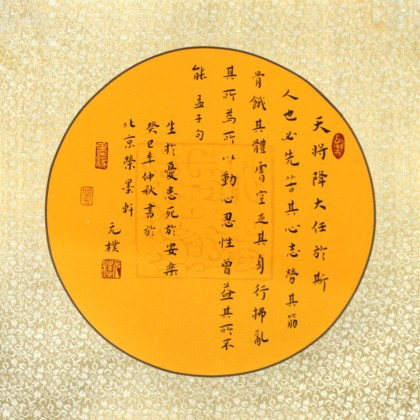 天将降大任於斯
人也必先苦其心志勞其筋
骨餓其體膚空乏其身行拂亂
其所為所以動心忍性曾益其所不
能 孟子句
生於憂患死於安樂
癸巳年仲秋書於
北京榮墨軒
元樸